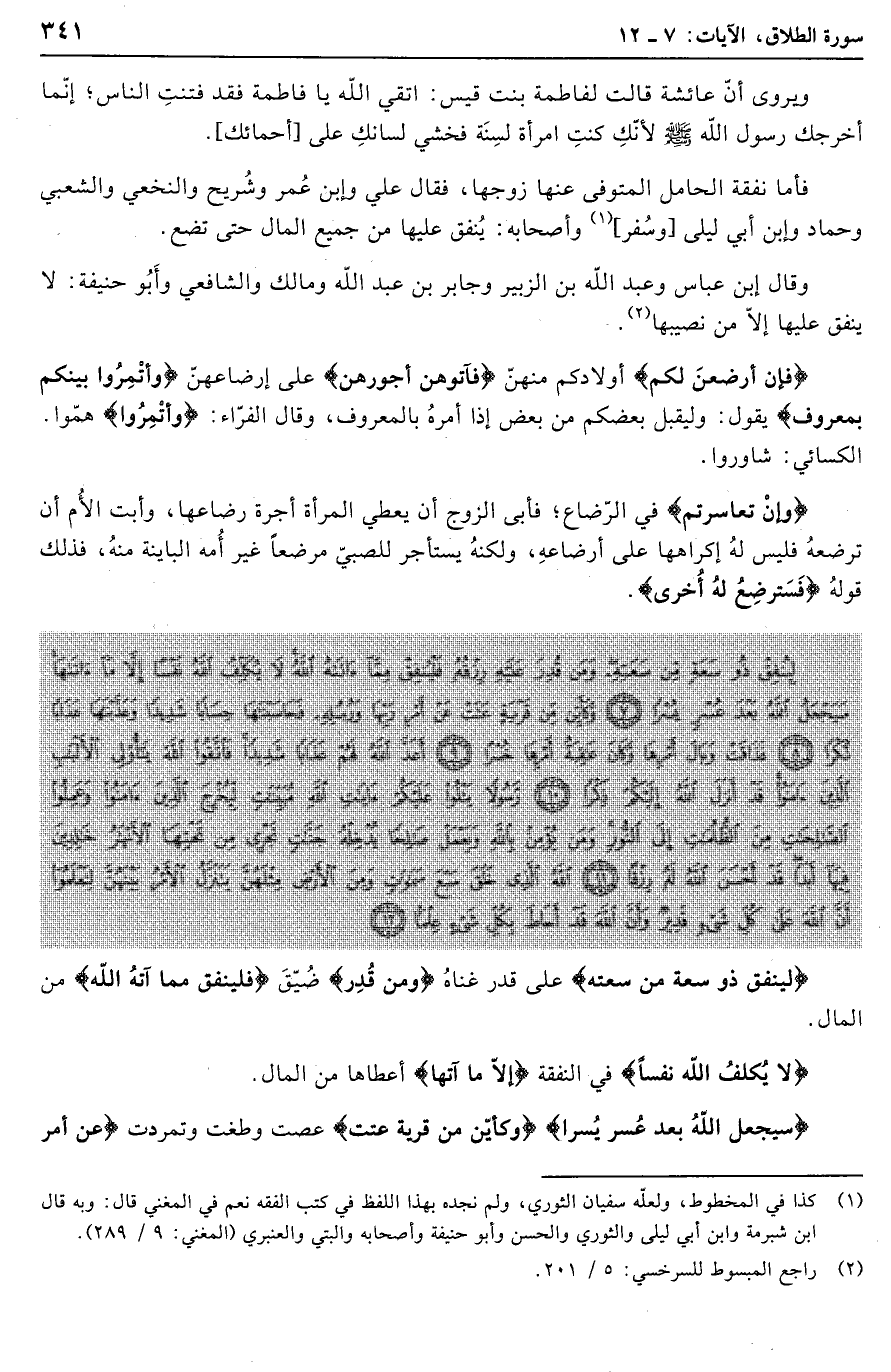 سورة الطلاق، الآيات: ٧ ـ ١٢
٣٤١
ويروى أنّ عائشة قالت لفاطمة بنت قيس: اتقي اللّه يا فاطمة فقد فتنتِ الناس؛ إنّما
أخرجك رسول اللّه ﷺ لأنّكِ كنتِ امرأة لسِنَة فخشي لسانكِ على [أحمائك].
فأما نفقة الحامل المتوفى عنها زوجها، فقال علي وإبن عُمر وشُريح والنخعي والشعبي
وحماد وإبن أبي ليلى [وسُفر](١) وأصحابه: يُنفق عليها من جميع المال حتى تضع.
وقال إبن عباس وعبد اللّه بن الزبير وجابر بن عبد اللّه ومالك والشافعي وأَبُو حنيفة: لا
ينفق عليها إلاّ من نصيبها(٢).
﴿فإن أرضعنَ لكم﴾ أولادكم منهنّ ﴿فآتوهن أجورهن﴾ على إرضاعهنّ ﴿وأتْمِرُوا بينكم
بمعروف﴾ يقول: وليقبل بعضكم من بعض إذا أمرهُ بالمعروف، وقال الفرّاء: ﴿وأتْمِرُوا﴾ همّوا.
الكسائي: شاوروا.
﴿وإنْ تعاسرتم﴾ في الرّضاع؛ فأبى الزوج أن يعطي المرأة أجرة رضاعها، وأبت الأُم أن
ترضعهُ فليس لهُ إكراهها على أرضاعهِ، ولكنهُ يستأجر للصبيّ مرضعاً غير أُمه الباينة منهُ، فذلك
قولهُ ﴿فَسَترضِعُ لهُ أُخرى﴾.
لِيُنفِقْ ذُو سَعَةٍ مِّن سَعَتِهِۦ وَمَن قُدِرَ عَلَيْهِ رِزْقُهُۥ فَلْيُنفِقْ مِمَّآ ءَاتَىٰهُ ٱللَّهُ لَا يُكَلِّفُ ٱللَّهُ نَفْسًا إِلَّا مَآ ءَاتَىٰهَا
سَيَجْعَلُ ٱللَّهُ بَعْدَ عُسْرٍ يُسْرًا ٧ وَكَأَيِّن مِّن قَرْيَةٍ عَتَتْ عَنْ أَمْرِ رَبِّهَا وَرُسُلِهِۦ فَحَاسَبْنَٰهَا حِسَابًا شَدِيدًا وَعَذَّبْنَٰهَا عَذَابًا
نُّكْرًا ٨ فَذَاقَتْ وَبَالَ أَمْرِهَا وَكَانَ عَٰقِبَةُ أَمْرِهَا خُسْرًا ٩ أَعَدَّ ٱللَّهُ لَهُمْ عَذَابًا شَدِيدًا فَٱتَّقُوا۟ ٱللَّهَ يَٰٓأُو۟لِى ٱلْأَلْبَٰبِ
ٱلَّذِينَ ءَامَنُوا۟ قَدْ أَنزَلَ ٱللَّهُ إِلَيْكُمْ ذِكْرًا ١٠ رَّسُولًا يَتْلُوا۟ عَلَيْكُمْ ءَايَٰتِ ٱللَّهِ مُبَيِّنَٰتٍ لِّيُخْرِجَ ٱلَّذِينَ ءَامَنُوا۟ وَعَمِلُوا۟
ٱلصَّٰلِحَٰتِ مِنَ ٱلظُّلُمَٰتِ إِلَى ٱلنُّورِ وَمَن يُؤْمِنۢ بِٱللَّهِ وَيَعْمَلْ صَٰلِحًا يُدْخِلْهُ جَنَّٰتٍ تَجْرِى مِن تَحْتِهَا ٱلْأَنْهَٰرُ خَٰلِدِينَ
فِيهَآ أَبَدًا قَدْ أَحْسَنَ ٱللَّهُ لَهُۥ رِزْقًا ١١ ٱللَّهُ ٱلَّذِى خَلَقَ سَبْعَ سَمَٰوَٰتٍ وَمِنَ ٱلْأَرْضِ مِثْلَهُنَّ يَتَنَزَّلُ ٱلْأَمْرُ بَيْنَهُنَّ لِتَعْلَمُوٓا۟
أَنَّ ٱللَّهَ عَلَىٰ كُلِّ شَىْءٍ قَدِيرٌ وَأَنَّ ٱللَّهَ قَدْ أَحَاطَ بِكُلِّ شَىْءٍ عِلْمًا ١٢
﴿لينفق ذو سعة من سعته﴾ على قدر غناهُ ﴿ومن قُدِر﴾ ضُيّقَ ﴿فلينفق مما آتهُ اللّه﴾ من
المال.
﴿لا يُكلفُ اللّه نفساً﴾ في النفقة ﴿إلاّ ما آتها﴾ أعطاها من المال.
﴿سيجعل اللّهُ بعد عُسر يُسرا﴾ ﴿وكأيّن من قرية عتت﴾ عصت وطغت وتمردت ﴿عن أمر
(١) كذا في المخطوط، ولعلّه سفيان الثوري، ولم نجده بهذا اللفظ في كتب الفقه نعم في المغني قال: وبه قال
ابن شبرمة وابن أبي ليلى والثوري والحسن وأبو حنيفة وأصحابه والبتي والعنبري (المغني: ٩ / ٢٨٩).
(٢) راجع المبسوط للسرخسي: ٥ / ٢٠١.